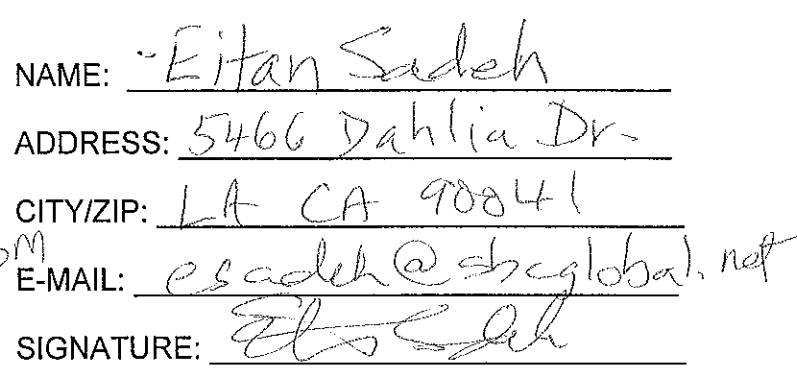 NAME: Eitan Sadeh
ADDRESS: 5466 Dahlia Dr.
CITY/ZIP: LA CA 90041
E-MAIL: esadeh@sbcglobal.net
SIGNATURE: